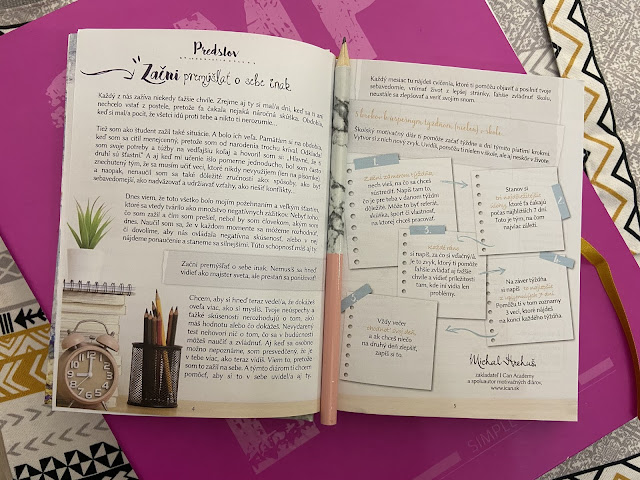 Predslov
Začni premýšľať o sebe inak
Každý z nás zažíva niekedy ťažšie chvíle. Zrejme aj ty si mal/a dni, keď sa ti ani
nechcelo vstať z postele, pretože ťa čakala nejaká náročná skúška. Obdobia,
keď si mal/a pocit, že všetci idú proti tebe a nikto ti nerozumie...
Tiež som ako študent zažil také situácie. A bolo ich veľa. Pamätám si na obdobia,
keď som sa cítil menejcenný, pretože som od narodenia trochu kríval. Odkladal
som svoje potreby a túžby na vedľajšiu koľaj a hovoril som si: „Hlavné, že sú
druhí so šťastní.“ A aj keď mi učenie išlo pomerne jednoducho, bol som často
znechutený tým, že sa musím učiť veci, ktoré nikdy nevyužijem (len na písomke)
a naopak, nenaučil som sa také dôležité zručnosti ako spôsoby, ako byť
sebavedomejší, ako nadväzovať a udržiavať vzťahy, ako riešiť konflikty...
Dnes viem, že toto všetko bolo mojím požehnaním a veľkým šťastím,
ktoré sa vtedy tvárilo ako množstvo negatívnych zážitkov. Nebyť toho,
čo som zažil a čím som prešiel, nebol by som človekom, akým som
dnes. Naučil som sa, že v každom momente sa môžeme rozhodnúť,
či dovolíme, aby nás ovládala negatívna skúsenosť, alebo v nej
nájdeme ponaučenie a staneme sa silnejšími. Túto schopnosť máš aj ty.
Začni premýšľať o sebe inak. Nemusíš sa hneď
vidieť ako majster sveta, ale prestaň sa ponižovať!
Chcem, aby si hneď teraz vedel/a, že dokážeš
oveľa viac, ako si myslíš. Tvoje neúspechy a
ťažké skúsenosti nerozhodujú o tom, akú
máš hodnotu alebo čo dokážeš. Nevydarený
test nehovorí nič o tom, čo sa v budúcnosti
môžeš naučiť a zvládnuť. Aj keď sa osobne
možno nepoznáme, som presvedčený, že je
v tebe viac, ako teraz vidíš. Viem to, pretože
som to zažil na sebe. A týmto diárom ti chcem
pomôcť, aby si to v sebe uvidel/a aj ty.
4
Každý mesiac tu nájdeš cvičenia, ktoré ti pomôžu objaviť a posilniť tvoje
sebavedomie, vnímať život z lepšej stránky, ľahšie zvládnuť školu,
neustále sa zlepšovať a veriť svojim snom.
Školský motivačný diár ti pomôže začať týždne a dni týmito piatimi krokmi.
Vytvor si z nich nový zvyk. Uvidíš, pomôžu ti nielen v škole, ale aj neskôr v živote.
1.
Začni zámerom týždňa,
neds viek, na čo sa chceš
sústrediť. Napíš tam to,
čo je pre teba v danom týždni
dôležité. Môže to byť referát,
skúška, šport či vlastnosť,
na ktorej chceš pracovať.
Stanov si
úlohy, ktoré ťa čakajú
počas najbližších 7 dní.
Toto je tým, na čom
najviac záleží.
3.
Každé ráno
si napíš, za čo si vďačný/á.
Je to zvyk, ktorý ti pomôže
ľahšie zvládať aj ťažšie
chvíle a vidieť príležitosti
tam, kde iní vidia len
problémy.
Vždy večer
zhodnoť svoj deň,
a ak chceš niečo
na druhý deň zlepšiť,
zapíš si to.
Na záver týždňa
si napíš
Pomôžu ti v tom zoznamy
3 vecí, ktoré nájdeš
na konci každého týždňa.
Michal Hrehuš
zakladateľ I Can Academy
a spoluautor motivačných diárov,
www.ican.sk
5